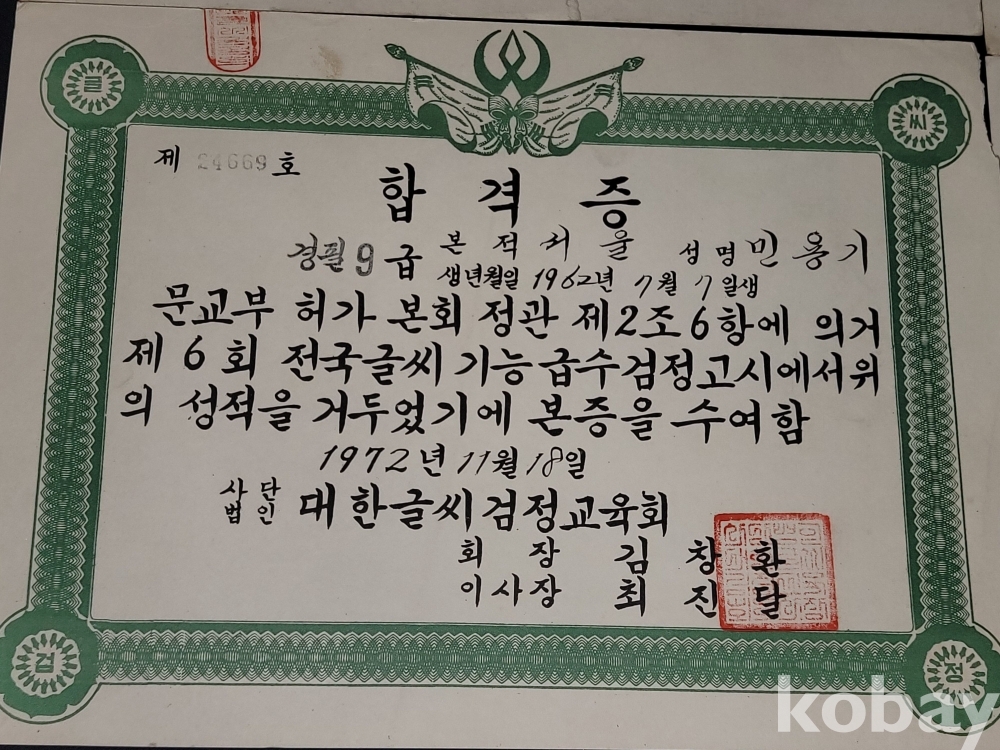 글
씨
제 24669 호
합격증
경필 9급 본적 서울 성명 민용기
생년월일 1962년 7월 7일생
문교부 허가 본회 정관 제2조 6항에 의거
제6회 전국글씨기능급수검정고시에서위
의 성적을 거두었기에 본증을 수여함
1972년 11월 18일
사단법인 대한글씨검정교육회
회장 김창환
이사장 최진달
검
정
kobay